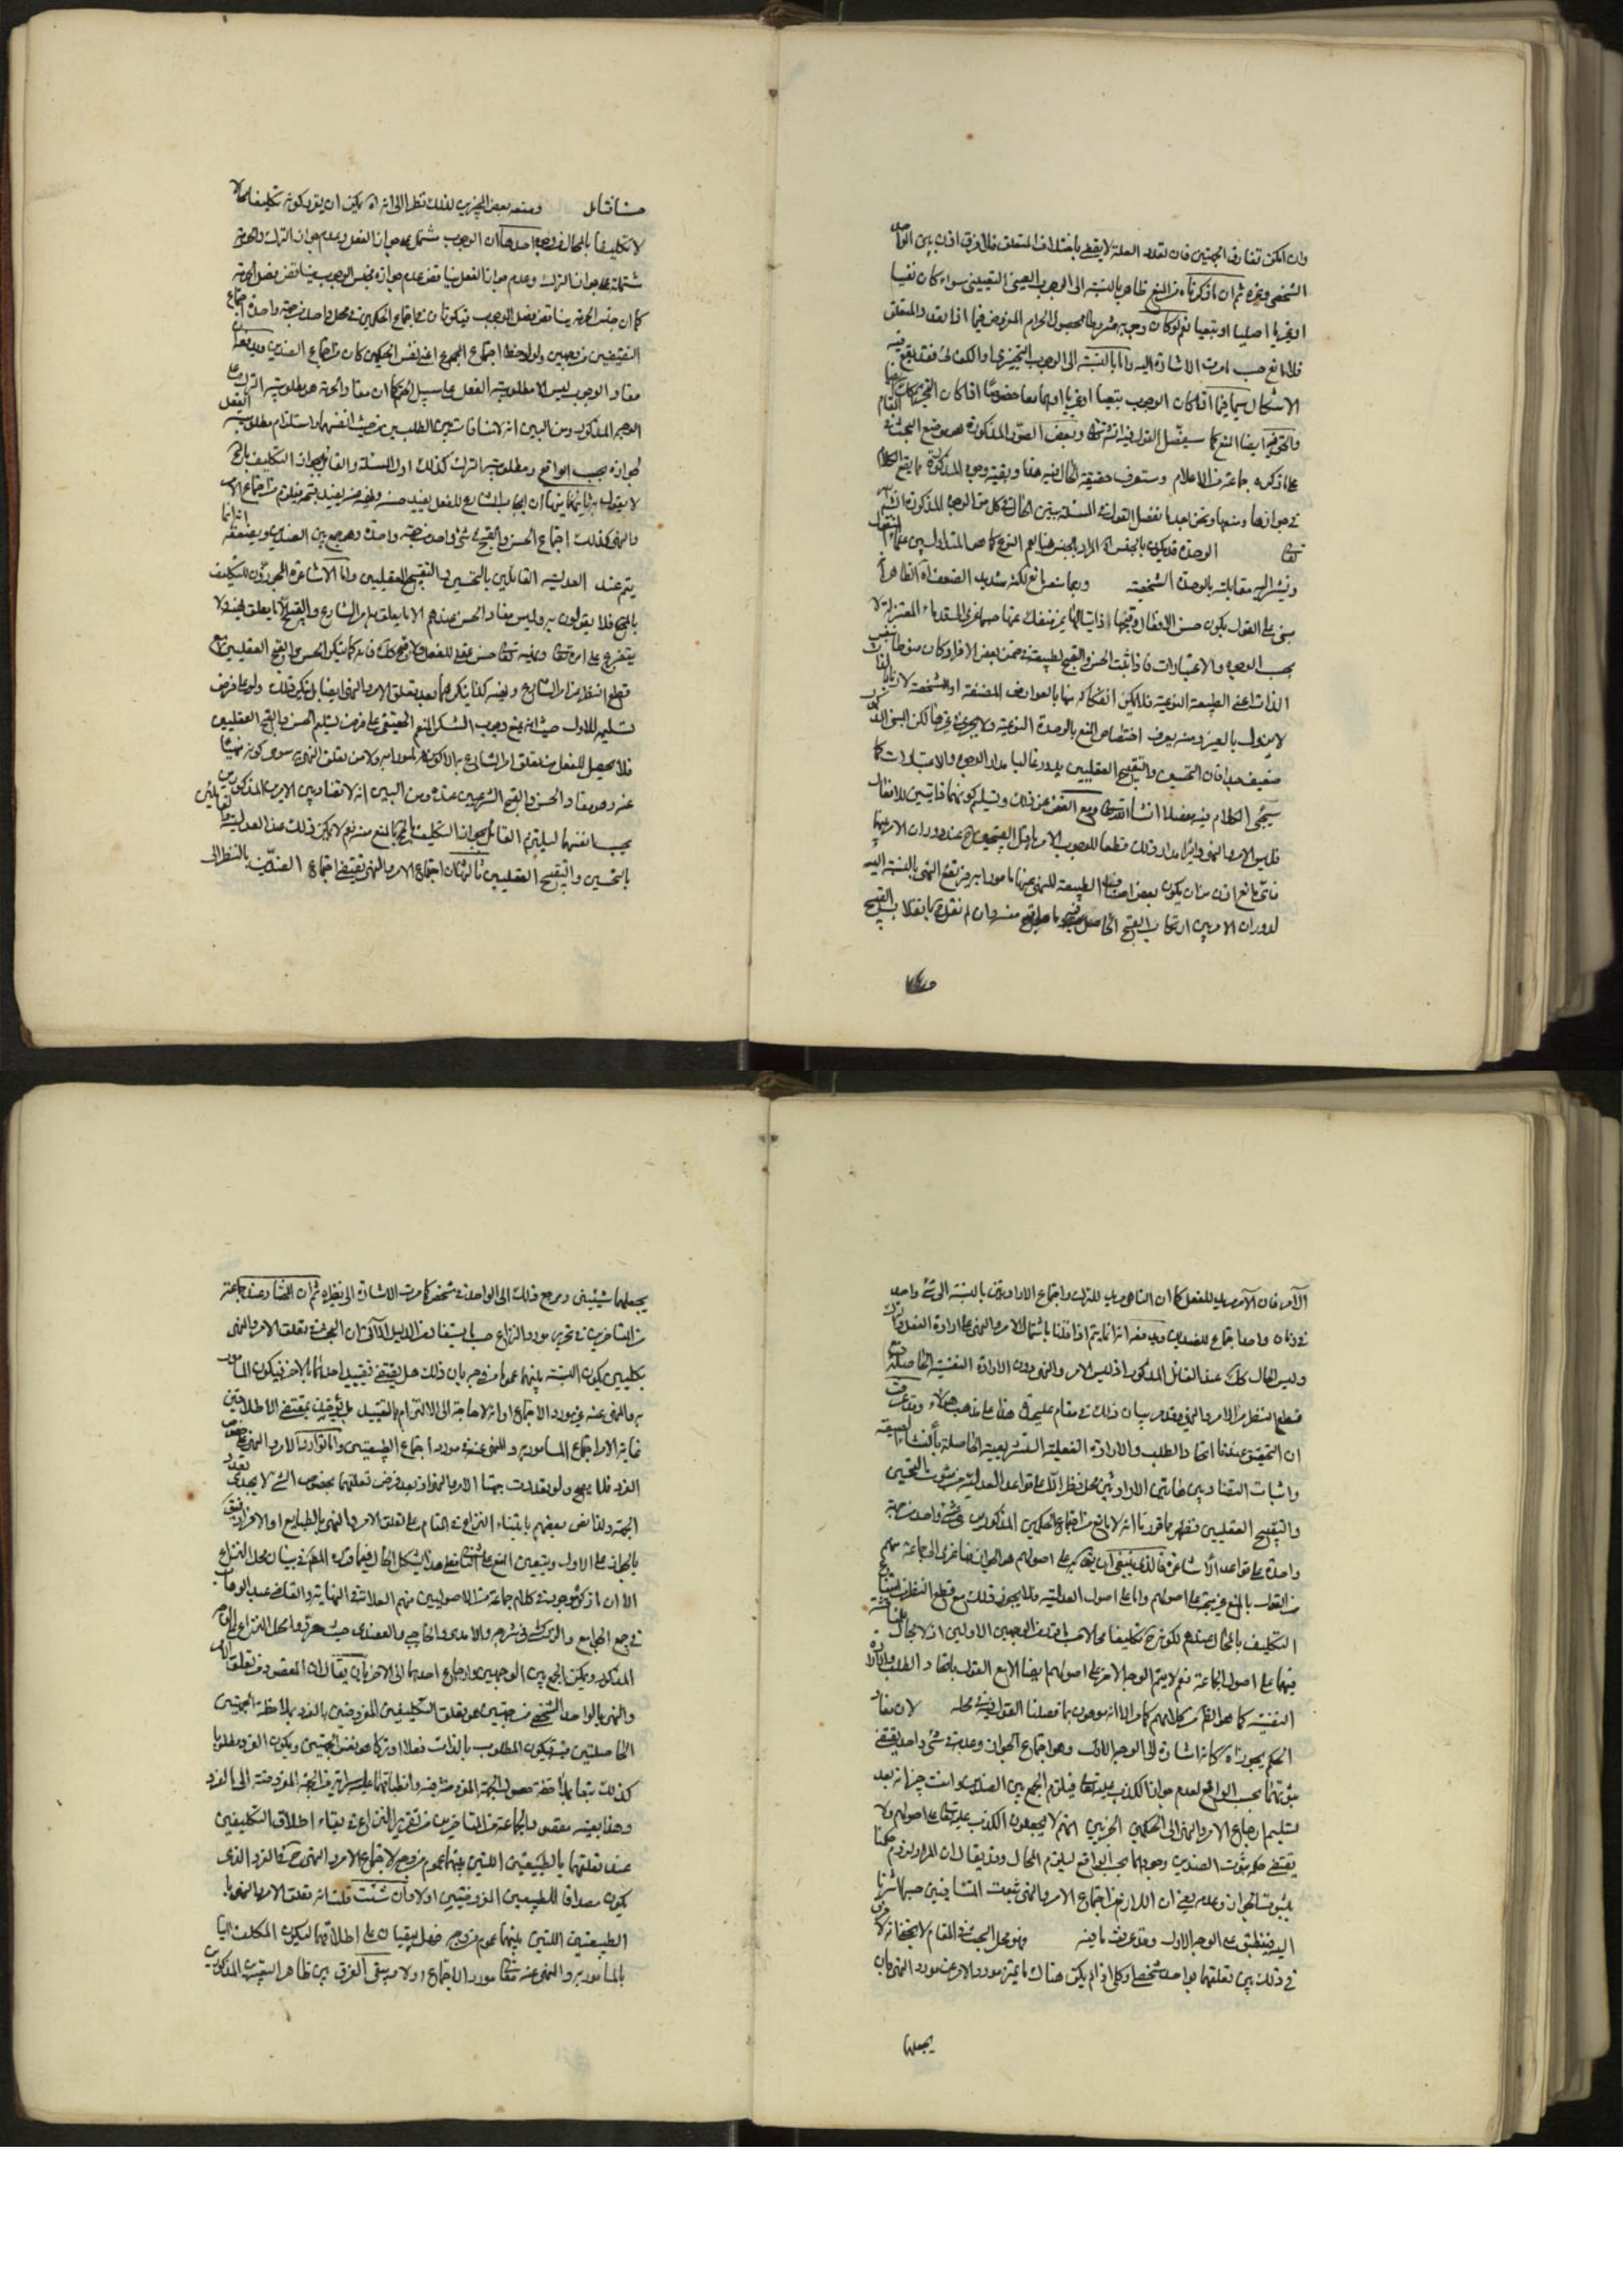 وان امكن تفارق الجهتين فان تعدد العلة لا يقضي باختلاف المتعلق فلا فرق اذن بين الواحد
الشخصي وغيره ثم ان ما ذكرناه من المنع ظاهر بالنسبة الى الوجوب العيني التعييني سواء كان نفسيا
او غيريا اصليا او تبعيا نعم لو كان وجوبه مشروطا بحصول الحرام المفروض فيما اذا تعدد المتعلق
فلا مانع حسب ما مرت الاشارة اليه واما بالنسبة الى الوجوب التخييري او الكفائي فقد يقع فيه
الاشكال سيما فيما اذا كان الوجوب تبعيا او غيريا او هما معا خصوصا اذا كان التخيير
والتحريم ايضا كما سيفصل القول فيه انشاء الله تعالى وبعض الصور المذكورة هو موضع البحث في المقام
على ما ذكره جماعة من الاعلام وستعرف حقيقة الحال فيه هذا وبقية وجوه المذكورة ما يقع الكلام
في جوازها ومنعها ونحن بعد ما نفصل القول في المسئلة نبين الحال في كل من الوجوه المذكورة انشاء الله
تعالى الوحدة قد يكون بالجنس اه المراد بالجنس هنا يعم النوع كما هو المتداول بين علماء المنقول
ويشير اليه مقابلته بالوحدة الشخصية وربما منعه مانع لكنه شديد الضعف اه الظاهر انه
مبني على القول بكون حسن الافعال وقبحها ذاتيا لها غير منفك عنها حسبما عزى الى قدماء المعتزلة لا
بحسب الوجوه والاعتبارات فاذا ثبت الحسن والقبح لطبيعة في ضمن بعض الافراد كان منوطا بنفس
الذات اعني الطبيعة النوعية فلا يمكن انفكاكه عنها بالعوارض المصنفة او المشخصة لان ما بالذات
لا يزول بالغير ومنه يعرف اختصاص المنع بالوحدة النوعية ولا يجري في غيرها لكن المبنى المذكور
ضعيف جدا فان التحسين والتقبيح العقليين يدور غالبا مدار الوجوه والاعتبارات كما
سيجيء الكلام فيه مفصلا انشاء الله تعالى ومع الغض عن ذلك وتسليم كونهما ذاتيين للافعال
فليس الامر والنهي دائرا مدار ذلك قطعا للوجوب الامر باقل القبيحين ح عند دوران الامر بينهما
فاي مانع اذن من ان يكون بعض اصناف الطبيعة المنهي عنها مامورا به من دفع النهي بالنسبة اليه
لدوران الامر بين ارتكاب القبح الحاصل فيه وما هو اقبح منه وان لم نقل ح بانقلاب القبيح
حسنا فتامل ومنعه بعض المجيزين لذلك نظرا الى انه اه يمكن ان يقرر كونه تكليفا محالا
لا تكليفا بالمحال من وجوه احدها ان الوجوب مشتمل على جواز الفعل وعدم جواز الترك والحرمة
مشتملة على جواز الترك وعدم جواز الفعل فيناقض عدم جوازه فجنس الوجوب يناقض فصل الحرمة
كما ان جنس الحرمة يناقض فصل الوجوب فيكون في اجتماع الحكمين في محل واحد من جهة واحدة اجتماع
النقيضين من وجهين ولو لوحظ اجتماع المجموع اعني نفس الحكمين كان من اجتماع الضدين ويدفعه ان
مفاد الوجوب ليس الا مطلوبية الفعل على سبيل الحتم كما ان مفاد الحرمة هو مطلوبية الترك على
الوجه المذكور ومن البين انه لا منافاة بين الطلبين من حيث انفسهما واستلزام مطلوبية الفعل
لجوازه بحسب الواقع ومطلوبية الترك كذلك اول المسئلة والقائل بجواز التكليف بالمحال
لا يقول به ثانيها ان ايجاب الشارع للفعل يفيد حسنه ونهيه عنه يفيد قبحه فيلزم من اجتماع الامر
والنهي كذلك اجتماع الحسن والقبح في شيء واحد من جهة واحدة وهو جمع بين الضدين ويضعفه انه انما
يتم عند العدلية القائلين بالتحسين والتقبيح العقليين واما الاشاعرة المجوزون للتكليف
بالمحال فلا يقولون به وليس مفاد الحسن عندهم الا ما يتعلق به امر الشارع والقبيح الا ما تعلق نهيه ولا
يتفرع على امره تعالى ونهيه تعالى حسن عقلي للفعل ولا قبح كذلك فانه كما ينكر الحسن والقبح العقليين مع
قطع النظر عن امر الشارع ونهيه كذا ينكرهما بعد تعلق الامر والنهي ايضا بل ينكر ذلك ولو على فرض
تسليمه للاول حيث انه يمنع وجوب الشكر المنعم الحقيقي على فرض تسليم الحسن والقبح العقليين
فلا يحصل للفعل من تعلق امر الشارع به الا كونه مامورا به ولا من تعلق النهي به سوى كونه منهيا
عنه وهو مفاد الحسن والقبح الشرعيين عنده ومن البين انه لا تضاد بين الامرين المذكورين
بحسب انفسهما ليلتزم القائل بجواز التكليف بالمحال بالمنع منه نعم لا يمكن ذلك عند العدلية القائلين
بالتحسين والتقبيح العقليين ثالثها ان اجتماع الامر والنهي يقتضي اجتماع الضدين بالنظر الى
الآمر فان الآمر مريد للفعل كما ان الناهي مريد للترك واجتماع الارادتين بالنسبة الى شيء واحد
في زمان واحد اجتماع للضدين ويدفعه انه انما يتم اذا قلنا باشتمال الامر والنهي على ارادة الفعل والترك
وليس الحال كذلك عند القائل المذكور اذ ليس الامر والنهي دون الارادة النفسية الحاصلة مع
قطع النظر عن الامر والنهي وقد مر بيان ذلك في مقام عليحدة هذا على مذهب هؤلاء وقد عرفت
ان التحقيق عندنا اتحاد الطلب والارادة الفعلية التشريعية الحاصلة بانشاء الصيغة
واثبات التضاد بين هاتين الارادتين محل نظر الا على قواعد العدلية من ثبوت التحسين
والتقبيح العقليين فظهر بما قررنا انه لا مانع من اجتماع الحكمين المذكورين في شيء واحد من جهة
واحدة على قواعد الاشاعرة فالذي ينبغي ان يقال به على اصولهم هو الجواز فما عزى الى جماعة منهم
من القول بالمنع غير متجه على اصولهم واما على اصول العدلية فلا يجوز ذلك مع قطع النظر عن امتناع
التكليف بالمحال عندهم لكونه ح تكليفا محالا حسب ما قرر في الوجهين الاولين اذ لا مجال للمناقشة
فيهما على اصول الجماعة نعم لا يتم الوجه الاخر على اصولهم ايضا الا مع القول باتحاد الطلب والارادة
النفسية كما هو الظاهر من كلامهم كما مر الا انه موهون بما فصلنا القول فيه في محله لان مفاد
الحكم بجوازه اه كانه اشارة الى الوجه الاول وهو اجتماع الجواز وعدمه في شيء واحد يقتضي
ثبوتهما بحسب الواقع لعدم جواز الكذب عليه تعالى فيلزم الجمع بين الضدين وانت خبير بانه بعد
تسليم ارجاع الامر والنهي الى الحكمين الخبريين انهم لا يحيلون الكذب عليه تعالى على اصولهم ولا
يقتضي حكمه بثبوت الضدين وجودهما بحسب الواقع ليلزم المحال وقد يقال ان المراد لزوم حكمنا
بثبوت الجواز وعدمه يعني ان اللازم من اجتماع الامر والنهي ثبوت المتنافيين حسبما اشرنا
اليه فينطبق على الوجه الاول وقد عرفت ما فيه فهو محل البحث في المقام لا يخفى انه لا فرق
في ذلك بين تعلقهما بواحد شخصي او كلي اذا لم يكن هناك ما يميز مورد الامر عن مورد النهي بان
يجعلها
يجعلهما شيئين ومرجع ذلك الى الواحد الشخصي كما مرت الاشارة الى نظيره ثم ان المختار عند جماعة
من المتاخرين في تحرير مورد النزاع حسب ما يستفاد من الدليل الآتي ان البحث في تعلق الامر والنهي
بكليين يكون النسبة بينهما عموما من وجه بان ذلك هل يقتضي تقييد احدهما بالاخر فيكون المامور
به والمنهي عنه غير مورد الاجتماع او انه لا حاجة الى الالتزام بالتقييد بل يؤخذ بمقتضى الاطلاقين
غاية الامر اجتماع المامور به والمنهي عنه في مورد اجتماع الطبيعتين واما توارد الامر والنهي على خصوص
الفرد فلا يصح ولو تعددت جهتا الامر والنهي اذ بعد فرض تعلقهما بخصوص الشيء لا يجدي تعدد
الجهة ولذا نص بعضهم بابتناء النزاع في المقام على تعلق الامر والنهي بالطبايع او الافراد فيتفرع
بالجواز على الاول ويتعين المنع على الثاني فعلى هذا يشكل الحال فيما ذكره المصنف في بيان محل النزاع
الا ان ما ذكره موجود في كلام جماعة من الاصوليين منهم العلامة في النهاية والقاضي عبد الوهاب
في جمع الجوامع والزركشي في شرحه والآمدي والحاجبي والعضدي حيث حرروا محل النزاع على الوجه
المذكور ويمكن الجمع بين الوجهين وارجاع احدهما الى الاخر بان يقال ان المقصود من تعلق الامر
والنهي بالواحد الشخصي من جهتين هو تعلق التكليفين المفروضين بالفرد بملاحظة الجهتين
الحاصلتين فيه فيكون المطلوب بالذات فعلا او تركا هو نفس الجهتين ويكون الفرد مطلوبا
كذلك تبعا بملاحظة حصول الجهة المفروضة فيه وانطباقها عليه سراية من الجهة المفروضة الى الفرد
وهذا بعينه مقصود الجماعة من المتاخرين من تقرير النزاع في بقاء اطلاق التكليفين
عند تعلقهما بالطبيعتين اللتين بينهما عموم من وجه لاجتماع الامر والنهي ح في الفرد الذي
يكون مصداقا للطبيعتين المفروضتين اولا وان شئت قلت انه بتعلق الامر والنهي با
لطبيعتين اللتين بينهما عموم من وجه فهل يبقيان على اطلاقهما ليكون المكلف آتيا
بالمامور به والمنهي عنه معا في مورد الاجتماع او لا ويبقى الفرق بين ظاهر التعبيرين المذكورين